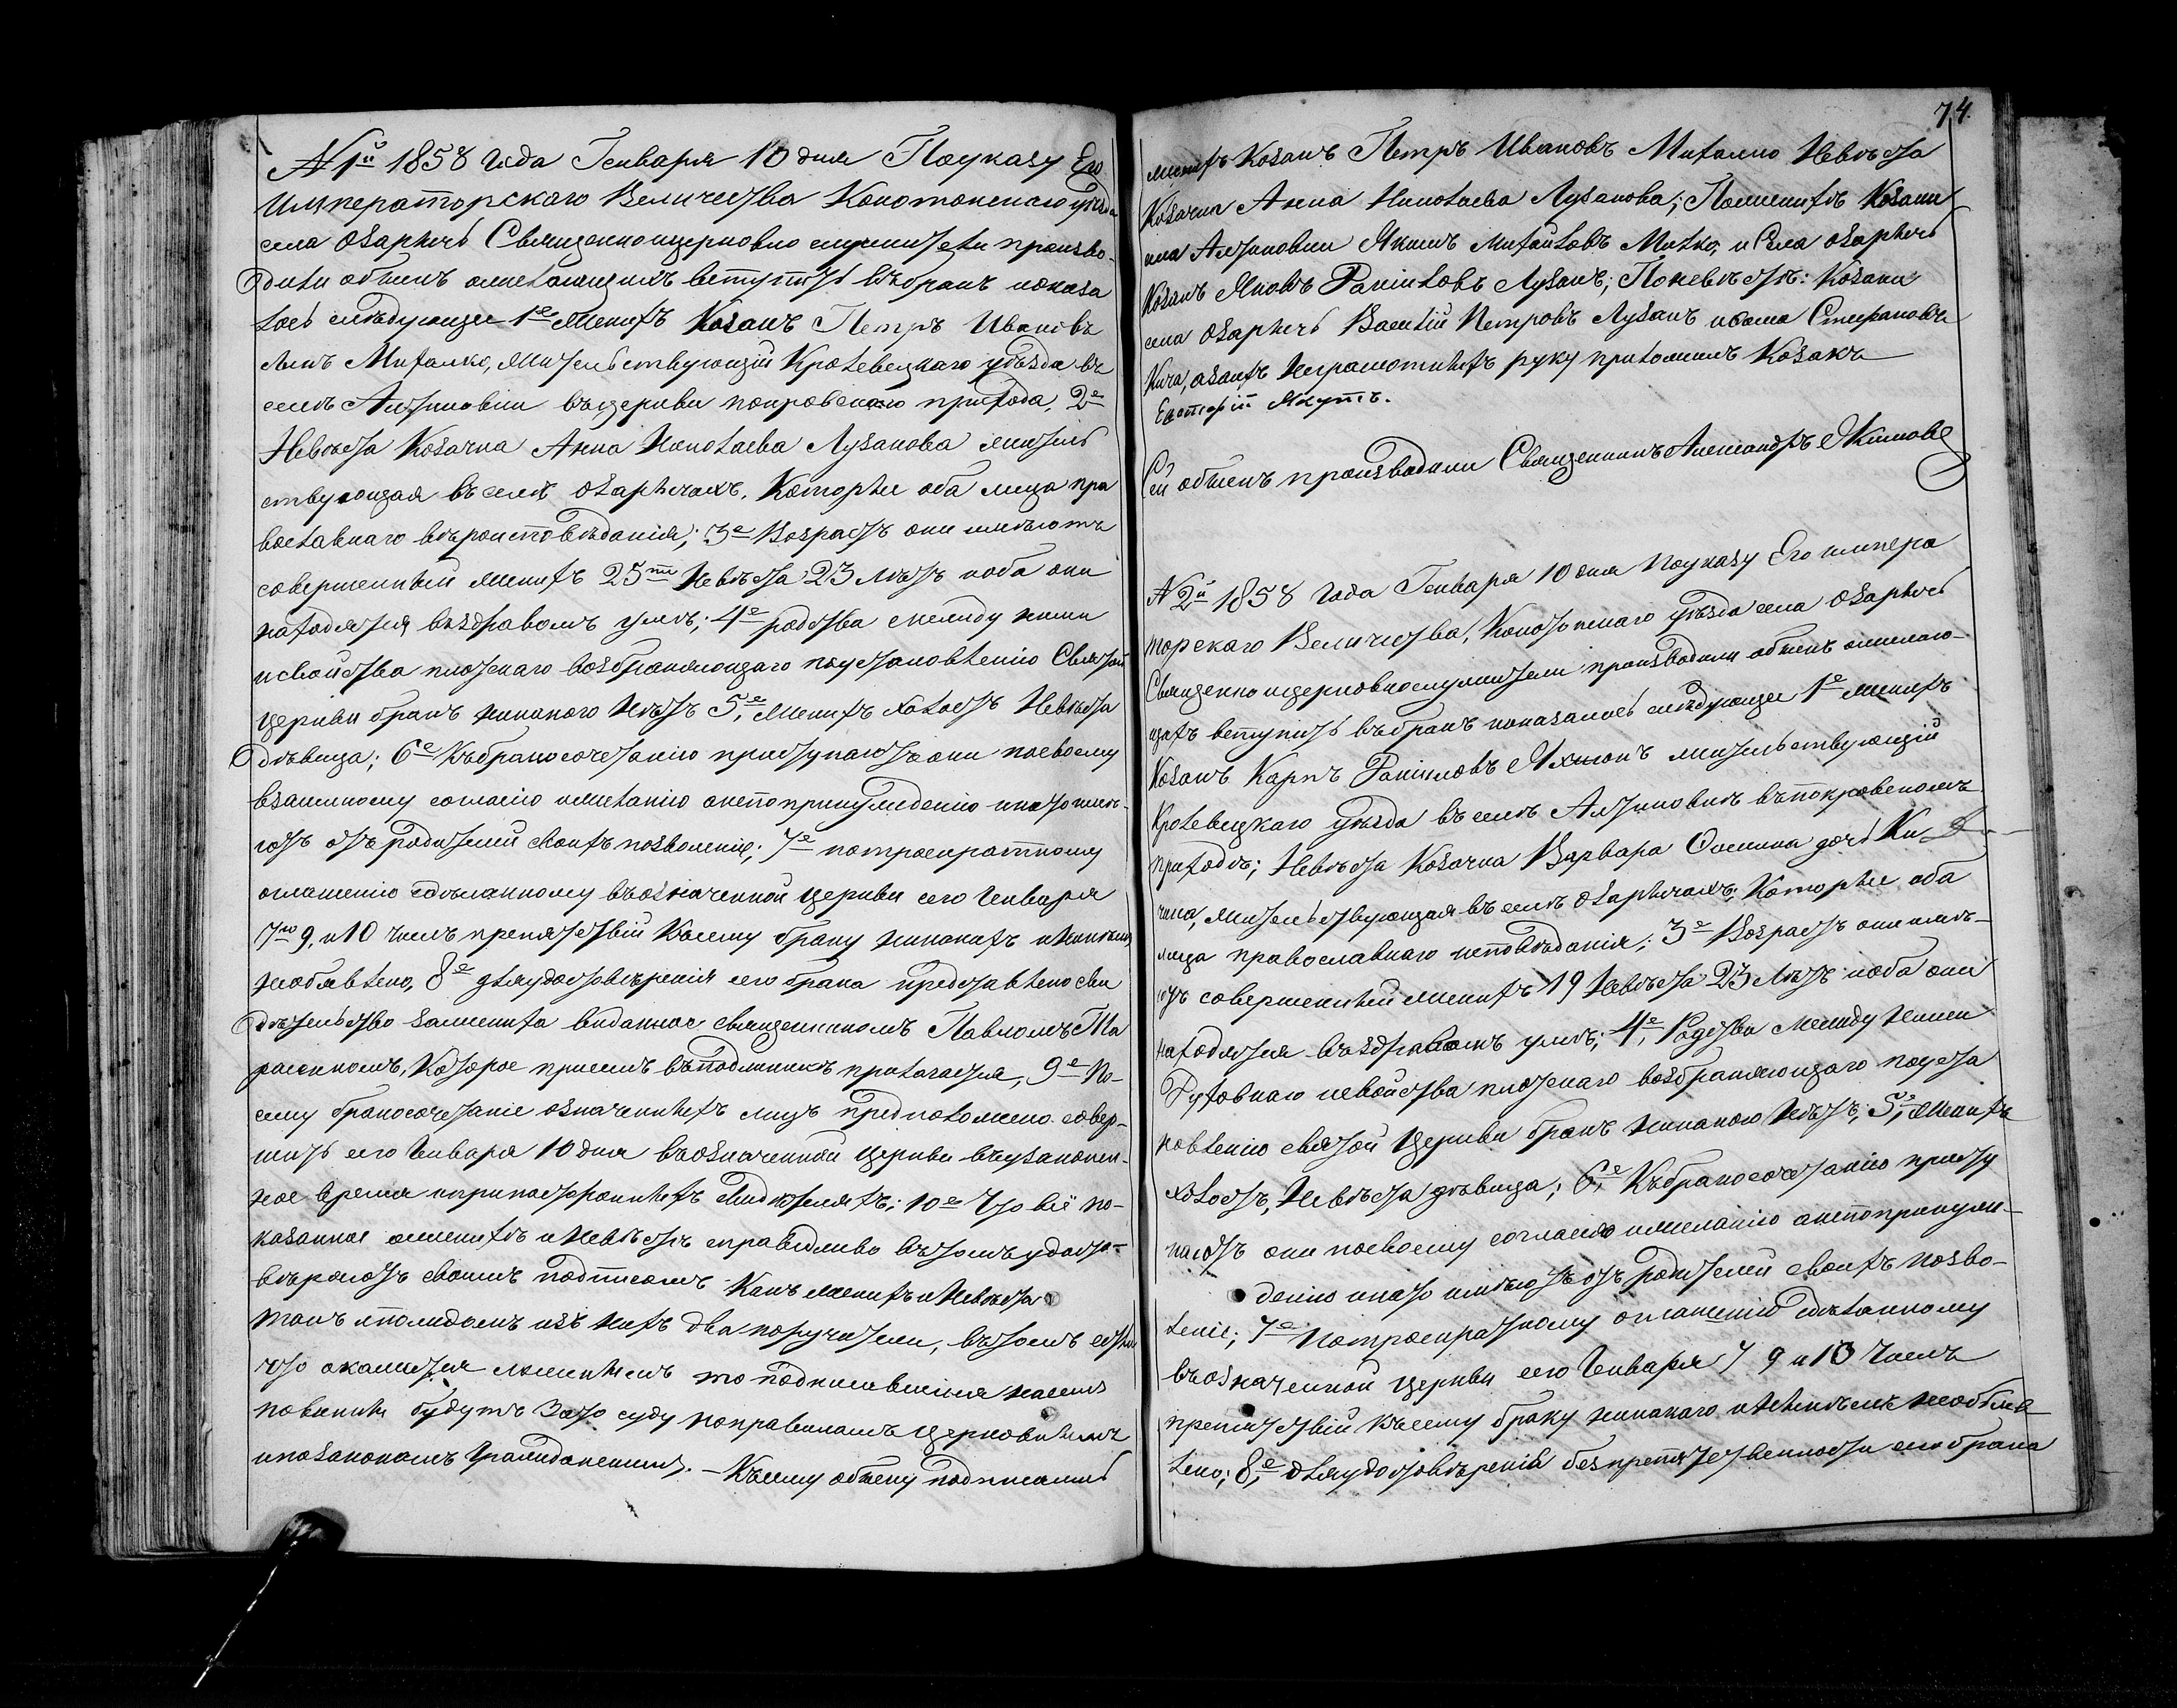 № 1й 1858 Года Генваря 10 дня Поуказу Его
Императорскаго Величества Конотопскаго уѣзда
села Озаричь Священноицерковно служители произво-
дили обыскъ ожелающихъ вступить въбракъ иоказа
лось слѣдующее 1е Женихъ Козакъ Петръ Ивановъ
сынъ Михалко, жительствующій Кролевецкаго уѣзда въ
селѣ Алтиновки въцеркви покровскаго прихода, 2е
Невѣста Козачка Анна Николаева Лузанова житель
ствующая въселѣ Озаричахъ, Которые оба лица пра
вославнаго вѣроисповѣданія; 3е Возрастъ они имѣютъ
совершенный женихъ 25ти Невѣста 23 лѣтъ иоба они
находятся вздравомъ умѣ; 4е родства между ними
исвойства плотскаго возбраняющаго поустановленію Святой
церкви бракъ никакого Нѣтъ 5е, Женихъ холостъ Невѣста
дѣвица; 6е Къбракосочетанію приступаютъ они посвоему
взаимному согласію ижеланію анепопринужденію инато имѣ-
ютъ отъ родителей своихъ позволеніе; 7е потроекратному
оглашенію сдѣланному въозначенной церкви сего Генваря
7го 9, и 10 числъ препятствій Ксему браку никакихъ иникемъ
необявлено, 8е дляудостовѣренія сего брака представлено сви
дѣтельство заженихa виданное священникомъ Павломъ Та
расикомъ, Которое присемъ въподлинникѣ прилагается, 9е По-
сему бракосочетаніе означенныхъ лицъ предположено совер-
шить сего Генваря 10 дня въозначенной церкви въузаконен-
ное время приипостороннихъ свидѣтеляхъ; 10е Что всё по-
казанное оженихѣ иНевѣстѣ справедливо вътомъ удосто-
вѣряютъ своимъ подписомъ Какъ женихъ иНевѣста
такъ ипокаждомъ изъ нихъ два поручителя, вътомъ естьли
что окажется ложнымъ то подписавшіяся насемъ
повинны будутъ Зато суду поправиламъ церковнымъ
ипозаконамъ Гражданскимъ. – Ксему обыску подписались
женихъ Козакъ Петръ Ивановъ Михалко Невѣста
Козачка Анна Николаева Лузанова; Поженихѣ Козаки
села Алтиновки Якимъ Михайловъ Михко, и Села Озаричь
Козакъ Яковъ Лузанъ; Поневѣстѣ: Козаки
села Озаричь Василій Петровъ Лузанъ иѳома Стефановъ
Кича, азанихъ Неграмотныхъ руку приложилъ Козакъ
Евстафій Якутъ.
Сей обыскъ производили Священникъ Александръ Якимовъ
74.
№ 2й 1858 Года Генваря 10 дня Поуказу Его импера
торскаго Величества, Конотопскаго уѣзда села Озаричь
Священно ицерковнослужители производили обыскъ ожелаю-
щихъ вступить въбракъ ипоказалось слѣдующее 1е женихъ
Козакъ Карпъ жительствующій
Кролевецкаго уѣзда въселѣ Алтиновкѣ въпокровскомъ
приходѣ; Невѣста Козачка Варвара Фомина дочь Ки
чина, жительствующая въселѣ Озаричахъ, Которые оба
лица православнаго исповѣданія; 3е Возрастъ они имѣ-
ютъ совершенный женихъ 19 Невѣста 23 Лѣтъ иоба они
находятся въздравомъ умѣ; 4е, Родства Между Ними
Духовнаго исвойства плотскаго возбраняющаго поуста
новленію святой Церкви бракъ никакого Нѣтъ; 5е, Женихъ
холостъ, Невѣста дѣвица; 6е, Къбракосочетанію присту
паютъ они посвоему согласію ижеланію анепопринуж-
денію инато имѣютъ отъ родителей своихъ позво-
леніе; 7е Потроекратному оглашенію сдѣланному
въозначенной церкви сего Генваря 7 9 и 10 Числъ
препятствій Ксему браку никакого иНикѣмъ необяв-
лено; 8е, дляудостовѣренія безпрепятственности сего брака